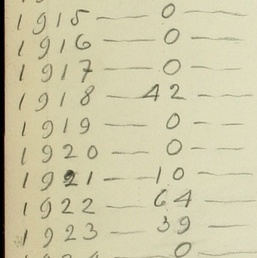 1915 — 0 —
1916 — 0 —
1917 — 0 —
1918 — 42 —
1919 — 0 —
1920 — 0 —
1921 — 10 —
1922 — 64 —
1923 — 39 —
0 —